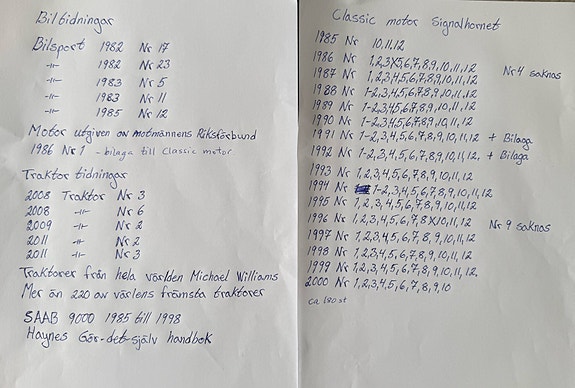 Biltidningar
Bilsport 1982 Nr 17
-11- 1982 Nr 23
-11- 1983 Nr 5
-11- 1983 Nr 11
-11- 1985 Nr 12
Motor utgiven av motmännens Riksförbund
1986 Nr 1 - bilaga till Classic motor
Traktor tidningar
2008 Traktor Nr 3
2008 -11- Nr 6
2009 -11- Nr 2
2011 -11- Nr 2
2011 -11- Nr 3
Traktorer från hela världen Michael Williams
Mer än 220 av värlens främsta traktorer
SAAB 9000 1985 till 1998
Haynes Gör-det-själv handbok
Classic motor Signalhornet
1985 Nr 10,11,12
1986 Nr 1,2,3X5,6,7,8,9,10,11,12 Nr 4 saknas
1987 Nr 1,2,3,4,5,6,7,8,9,10,11,12
1988 Nr 1-2,3,4,5,6,7,8,9,10,11,12
1989 Nr 1-2,3,4,5,6,7,8,9,10,11,12
1990 Nr 1-2,3,4,5,6,7,8,9,10,11,12
1991 Nr 1-2,3,4,5,6,7,8,9,10,11,12 + Bilaga
1992 Nr 1-2,3,4,5,6,7,8,9,10,11,12, + Bilaga
1993 Nr 1,2,3,4,5,6,7,8,9,10,11,12
1994 Nr 1-2,3,4,5,6,7,8,9,10,11,12
1995 Nr 1,2,3,4,5,6,7,8,9,10,11,12
1996 Nr 1,2,3,4,5,6,7,8X10,11,12 Nr 9 saknas
1997 Nr 1,2,3,4,5,6,7,8,9,10,11,12
1998 Nr 1,2,3,4,5,6,7,8,9,10,11,12
1999 Nr 1,2,3,4,5,6,7,8,9,10,11,12.
2000 Nr 1,2,3,4,5,6,7,8,9,10
ca 180 st